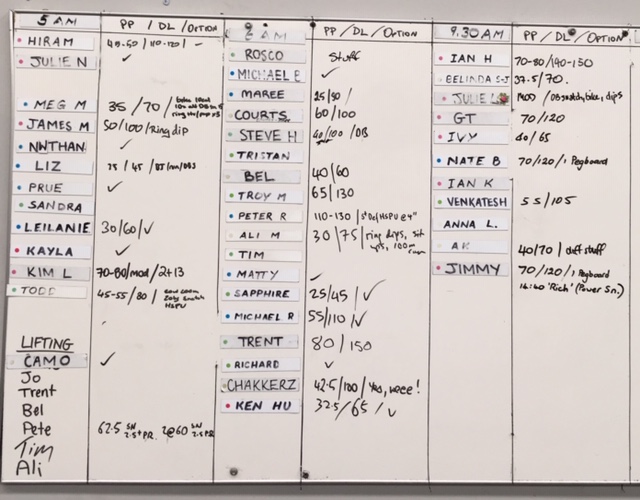 5 AM PP / DL / OPTION
HIRAM 40-50 / 110-120 / -
JULIE N ✓
MEG M 35 / 70 /
JAMES M 50/100/ring dip
NWTHAN ✓
LIZ 25 / 45 /
PRUE ✓
SANDRA
LEILANIE 30/60/✓
KAYLA ✓
KIM L 70-80/mod/2+13
TODD 45-55/80 /
LIFTING
CAMO ✓
Jo
Trent
Bel
Pete 62.5 SN 2.5+PR. 2@60 SN 2.5 PR
Tim
Ali
AM PP / DL / OPTION
ROSCO Stuff
MICHAEL B ✓
MAREE 25/50/
COURTS 60/100
STEVE H 40/100 /DB
TRISTAN
BEL 40/60
TROY M 65/130
PETER R 110-130 /
ALI M 30/75/ring dips, sit ups, 100m
TIM
MATTY ✓
SAPPHIRE 25/45/✓
MICHAEL R 55/110/✓
TRENT 80/150
RICHARD ✓
CHAKKERZ 42.5/100/Yes, weee!
KEN HU 32.5/65/✓
9.30AM PP / DL / OPTION
IAN H 70-80/140-150
BELINDA S-J 37.5/70.
JULIE L / DB snatch, bike, dips
GT 70/120
IVY 40/65
NATE B 70/120/1 Pegboard
IAN K
VENKATESH 55/105
ANNA L.
AK 40/70 / diff stuff
JIMMY 70/120/1 Pegboard
14:40 'Rich' (Power Sn.)